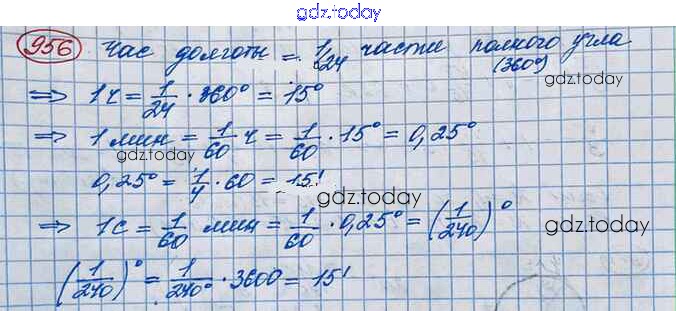 gdz.today
956 Час долготы = 1/24 части полного угла
(360°)
gdz.today
=> 1ч = 1/24 · 360° = 15°
gdz.today
=> 1 мин = 1/60 ч = 1/60 · 15° = 0,25°
gdz.today
0,25° = 1/4 · 60 = 15'
gdz.today
=> 1с = 1/60 мин = 1/60 · 0,25° = (1/240)°
gdz.today
(1/240)° = 1/240° · 3600 = 15'